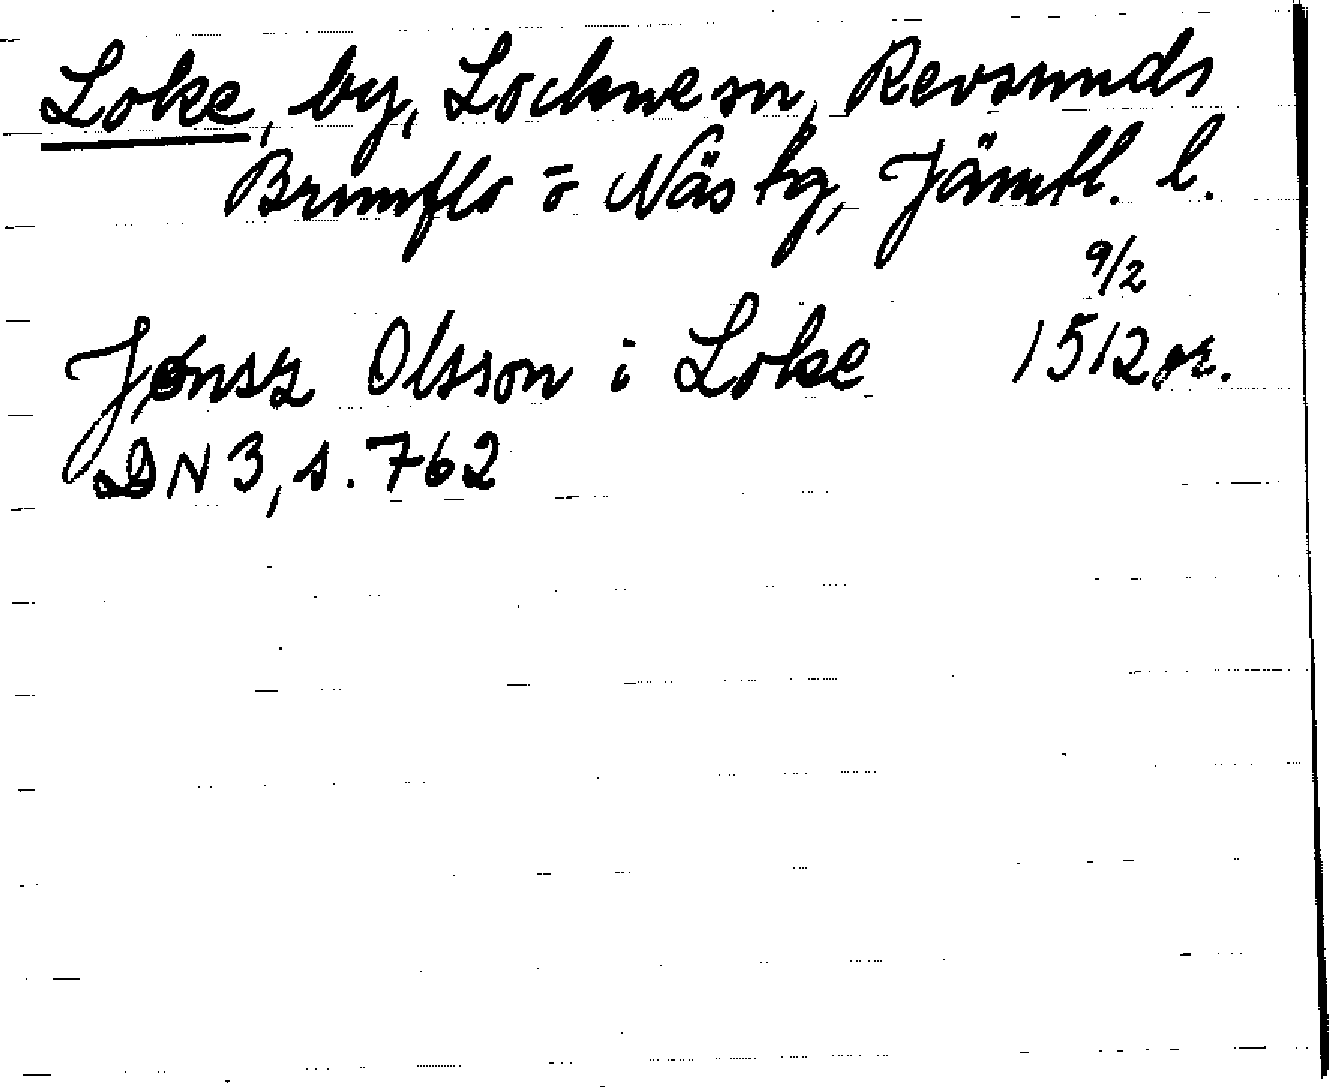 Loke, by, Lockne sn, Revsunds
Brunflo o Näs tg, Jämtl. l.
9/2
Jønsz Olsson i Loke 1512 or.
DN 3, s. 762